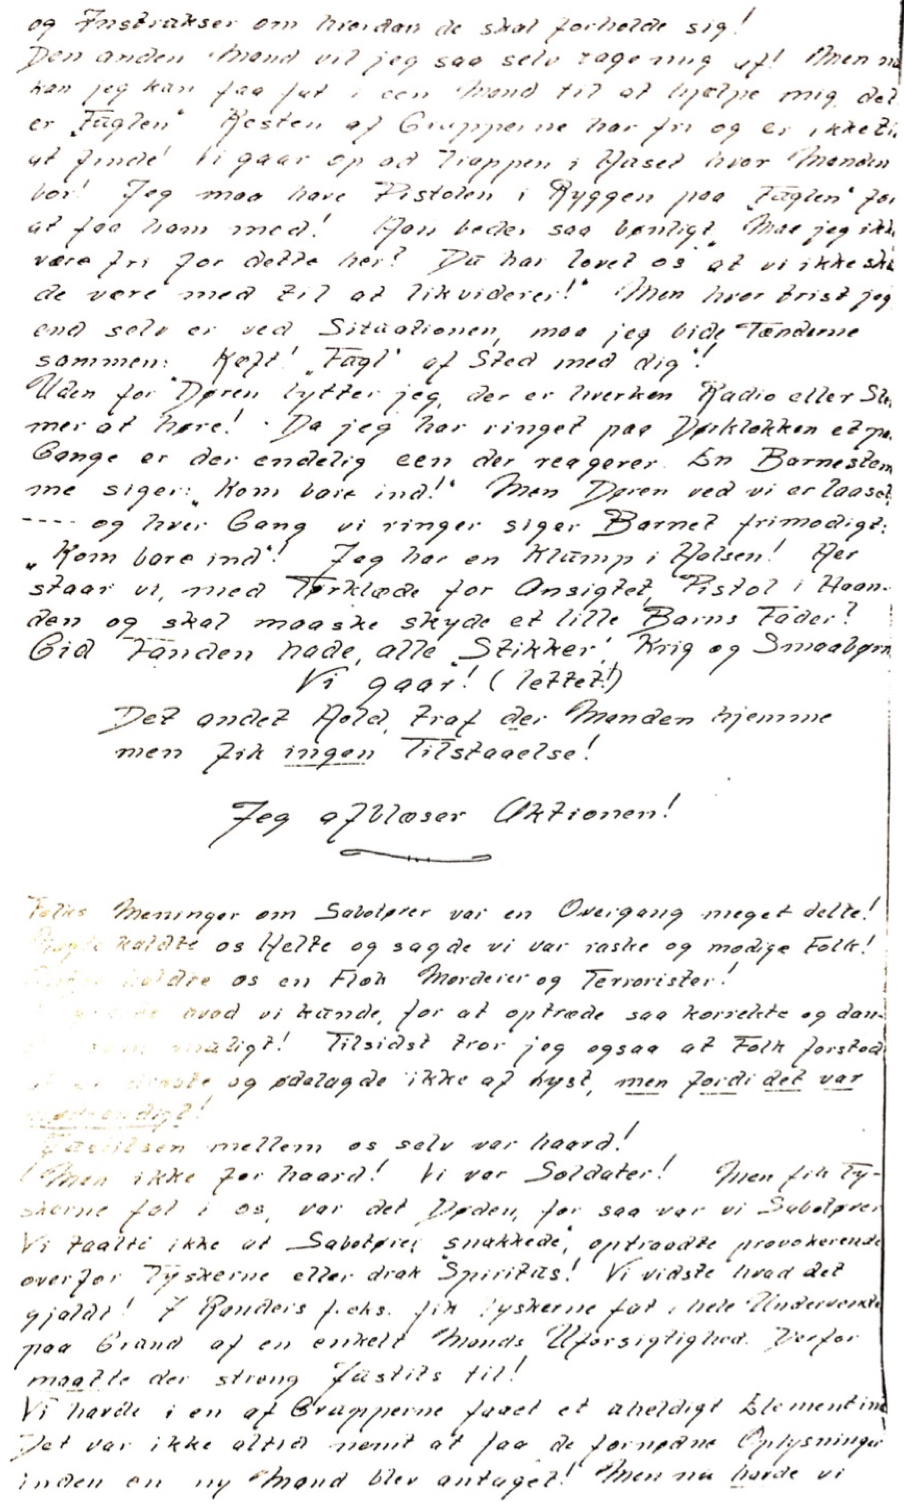 og Instrukser om hvordan de skal forholde sig!
Den anden Mand vil jeg saa selv tage mig af! Men nu
kan jeg kun faa fat i een Mand til at hjælpe mig, det
er „Fuglen“ Resten af Grupperne har fri og er ikke til
at finde! Vi gaar op ad Trappen i Huset hvor Manden
bor! Jeg maa have Pistolen i Ryggen paa „Fuglen“ for
at faa ham med! Han beder saa bønligt „Maa jeg ikke
være fri for dette her? Du har lovet os at vi ikke skul
de være med til at likviderer!“ Men hvor trist jeg
end selv er ved Situationen, maa jeg bide Tænderne
sammen: Kæft! „Fugl“ af Sted med dig“!
Uden for Døren lytter jeg, der er hverken Radio eller Stem
mer at høre! Da jeg har ringet paa Dørklokken et par
Gange er der endelig een der reagerer. En Barnestem
me siger: „Kom bare ind!“ Men Døren ved vi er laaset
---- og hver Gang vi ringer siger Barnet frimodigt:
„Kom bare ind“! Jeg har en Klump i Halsen! Her
staar vi, med Tørklæde for Ansigtet, Pistol i Haan-
den og skal maaske skyde et lille Barns Fader?
Gid Fanden hade, alle „Stikker“, Krig og Smaabørn
Vi gaar! (lettet!)
Det andet Hold, traf der Manden hjemme
men fik ingen Tilstaaelse!
Jeg afblæser Aktionen!
Folks Meninger om Sabotører var en Overgang meget delte!
Nogle kaldte os Helte og sagde vi var raske og modige Folk!
kaldte os en Flok Mordere og Terrorister!
hvad vi kunde, for at optræde saa korrekte og dan-
muligt! Tilsidst tror jeg ogsaa at Folk forstod
og ødelagde ikke af Lyst, men fordi det var
nødvendigt!
Justitsen mellem os selv var haard!
Men ikke for haard! Vi var Soldater! Men fik Ty-
skerne fat i os, var det Døden, for saa var vi Sabotører
Vi taalte ikke at Sabotører „snakkede“, optraadte provokerende
overfor Tyskerne eller drak Spiritus! Vi vidste hvad det
gjaldt! I Randers f.eks. fik Tyskerne fat i hele Underverdenen
paa Grund af en enkelt Mands Uforsigtighed. Derfor
maatte der streng Justits til!
Vi havde i en af Grupperne faaet et uheldigt Element ind
Det var ikke altid nemt at faa de fornødne Oplysninger
inden en ny Mand blev antaget! Men nu havde vi